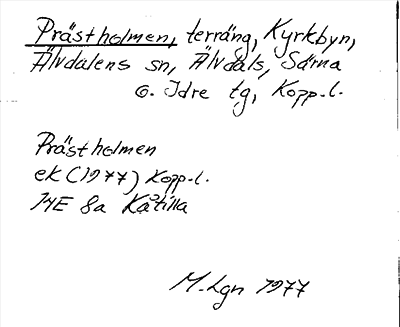 Prästholmen, terräng, Kyrkbyn,
Älvdalens sn, Älvdals, Särna
o. Idre tg, Kopp.l.
Prästholmen
ek (1977) Kopp.l.
14E 8a Kåtilla
M.Lgn 1977